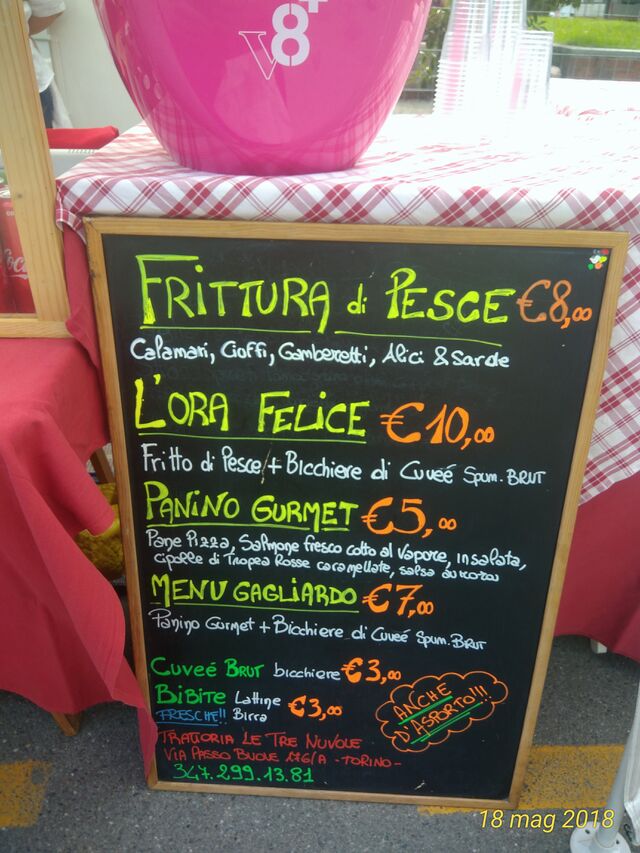 V8+
FRITTURA di PESCE €8,00
Calamari, Cioffi, Gamberetti, Alici & Sarde
L'ORA FELICE €10,00
Fritto di Pesce + Bicchiere di Cuveé Spum. BRUT
PANINO GURMET €5,00
Pane Pizza, Salmone fresco cotto al Vapore, insalata,
cipolle di Tropea Rosse caramellate, salsa
MENU GAGLIARDO €7,00
Panino Gurmet + Bicchiere di Cuveé Spum. BRUT
CUVEÉ BRUT bicchiere €3,00
BIBITE Lattine €3,00
FRESCHE!! Birra
ANCHE
D'ASPORTO!!!
TRATTORIA LE TRE NUVOLE
VIA PASSO BUOLE /A - TORINO -
347.299.13.81
18 mag 2018